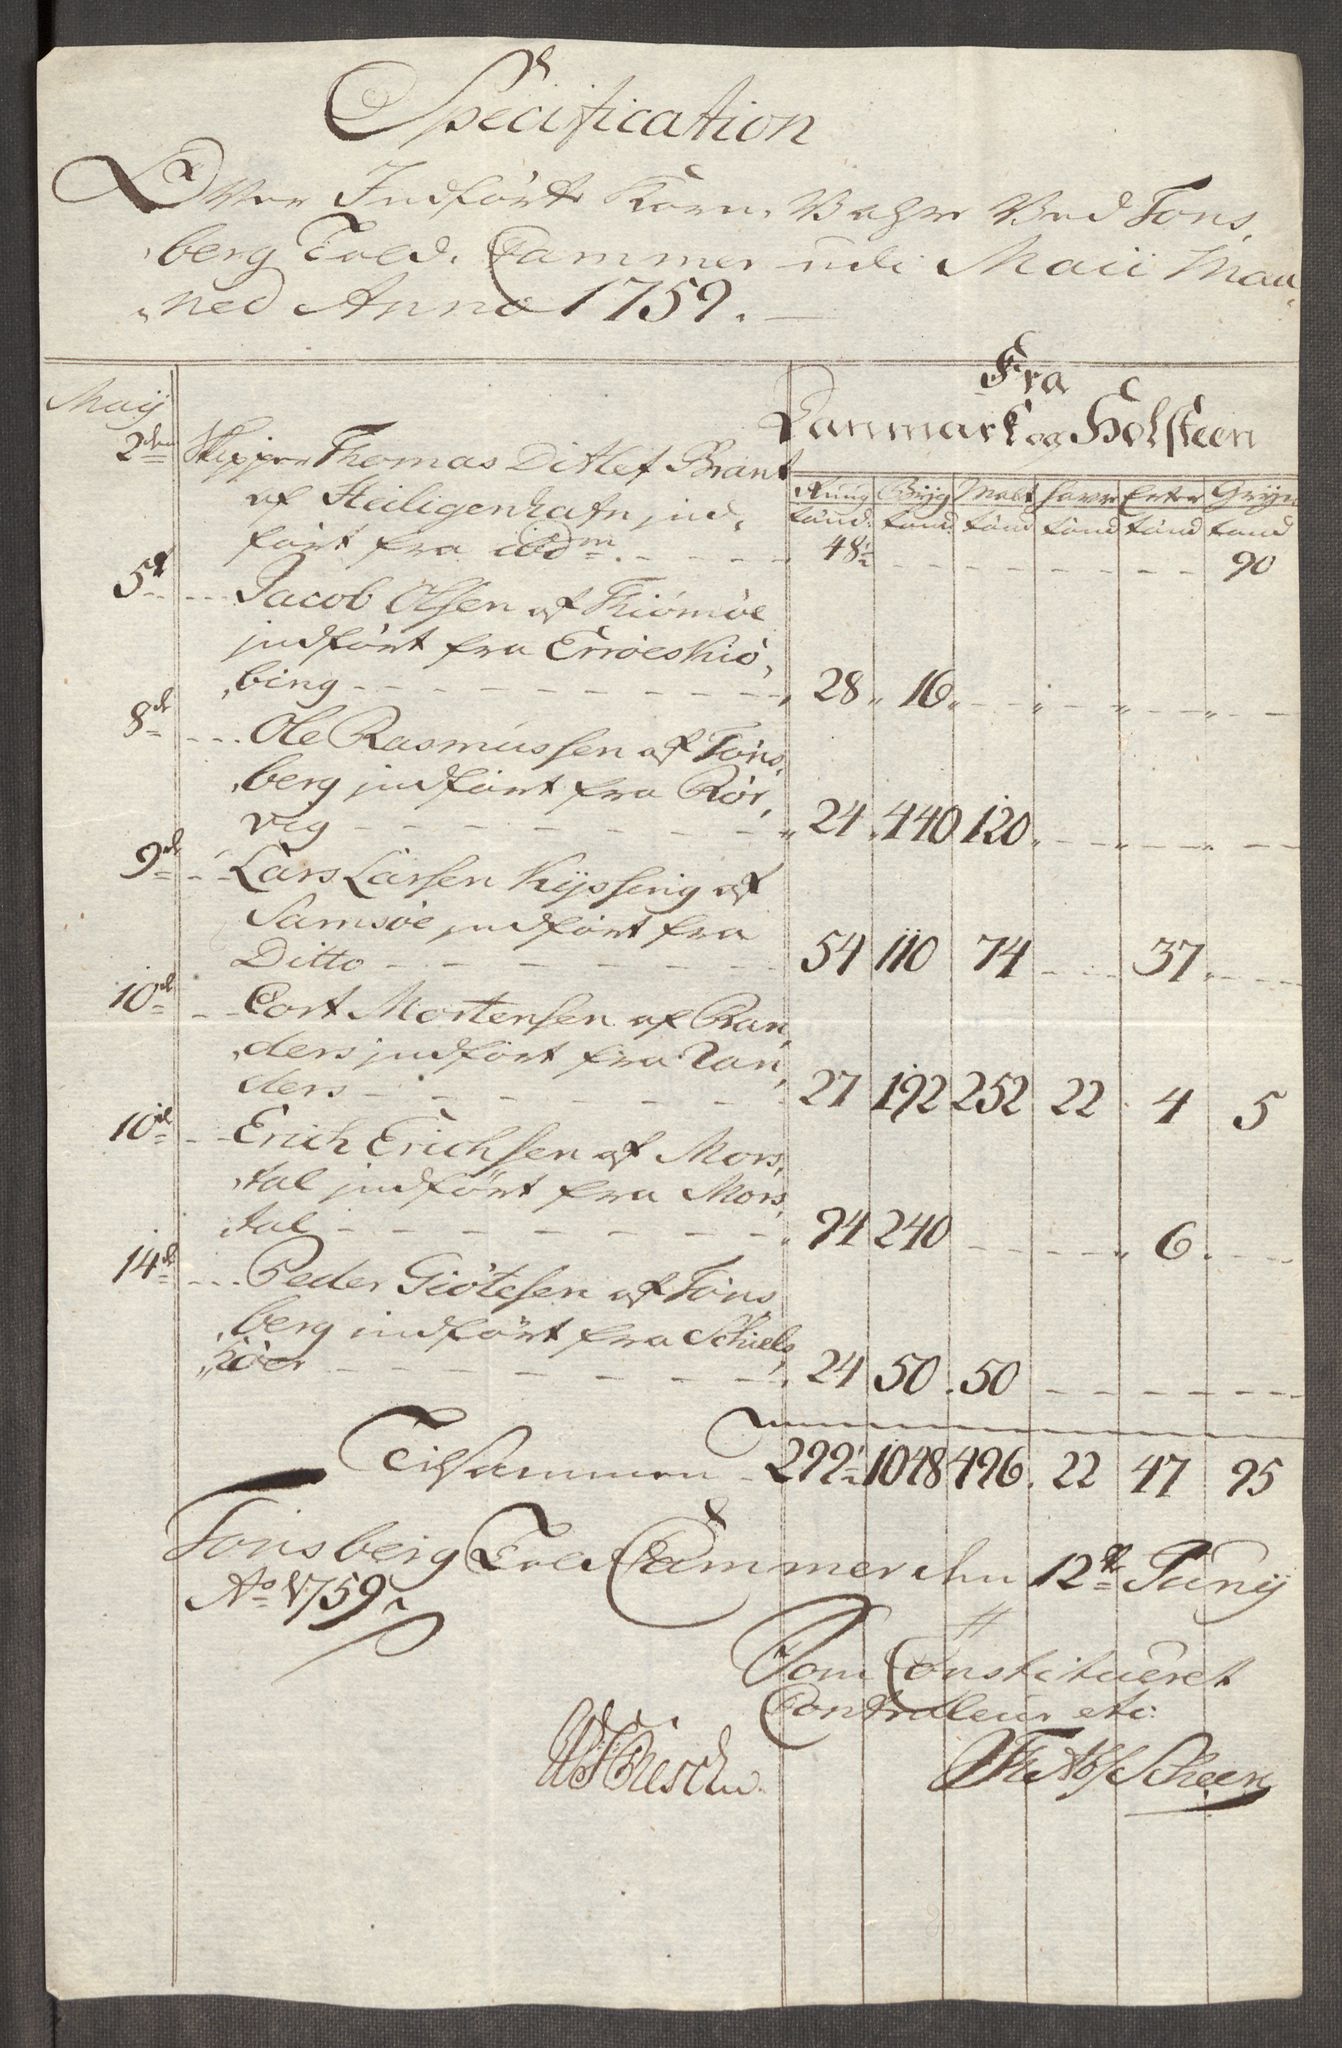 Specification
Over Indförte Korn-Vahre Ved Töns-
berg Told-Cammer udi Maii Maa-
ned Anno 1759.
Fra
Danmark og Holsteen
Maij
Rug Byg Malt Havre Erter Gryn
tönd: tönd: tönd tönd tönd tönd
2den Skipper Thomas Ditlef Brant
af Heiligenhafn ind-
fört fra ibdm - - - 48½ - - - - - 90
5te - - Jacob Olsen af Thiömöe
indfört fra Erröeskiö-
bing - - - - 28 „ 16 „ - - „ - „ - „ -
8de - - Ole Rasmussen af Töns-
berg indfört fra Rör-
vig - - - - „ 24 „ 440 120 „ - „ - „ -
9de - - Lars Larsen Kyssing af
Samsöe indfört fra
Ditto - - - - 54 110 74 - - 37 „ - -
10de - - Cort Mortensen af Ran-
ders indfört fra Ran-
ders - - - - 27 192 252 22 4 5
10de - - Erich Erichsen af Mors-
tal indfört fra Mors-
tal - - - - „ 94 240 - - - „ 6 „ - -
14de - - Peder Giötesen af Töns-
berg indfört fra Schiels-
köer - - - - 24 50 „ 50 - - - -
Tilsammen - 299½ 1048 496 „ 22 47 95
Tönsberg Told Cammer den 12te Junij
Ao 1759
Som Constitueret
Controlleur etc: